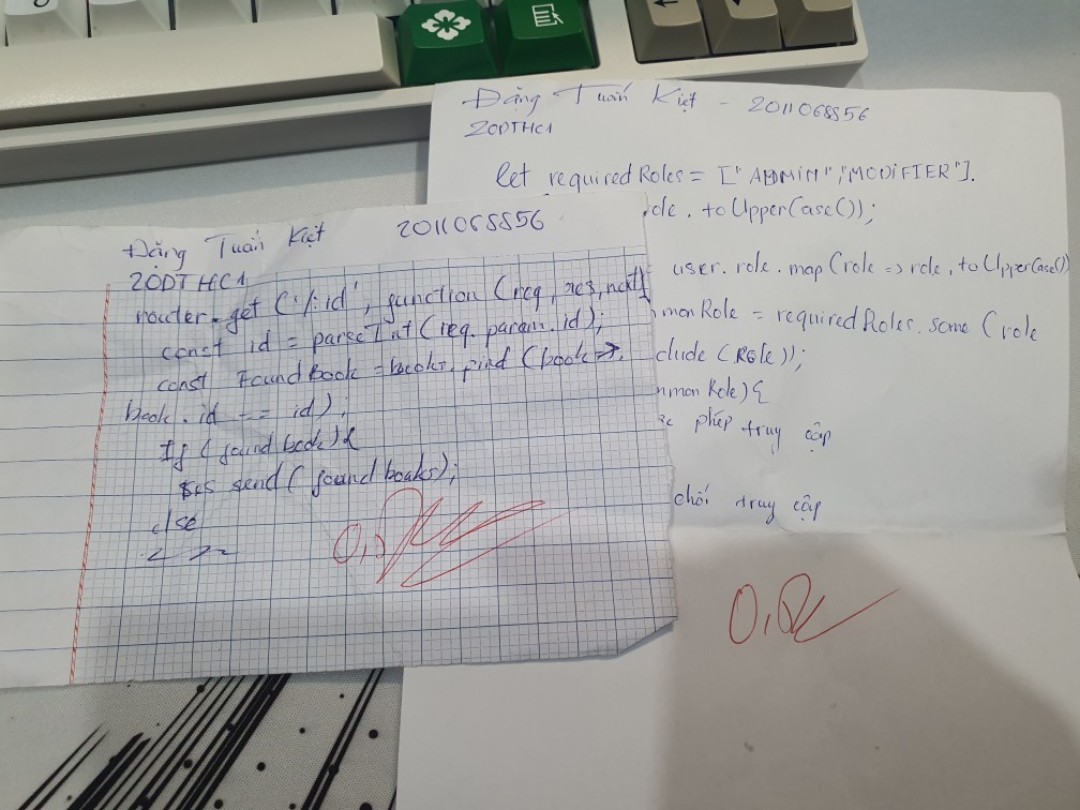 Đặng Tuấn Kiệt - 2011068856
20DTHC1
let requiredRoles = ["ADMIN","MODIFIER"].
role.toUpperCase());
user.role.map(role => role.toUpperCase()
monRole = requiredRoles.some(role
clude(Role));
mmon Role){
phép truy cập
chối truy cập
0,
Đặng Tuấn Kiệt 2011068856
20DTHC1
router.get('/:id', function (req, res, next){
const id = parseInt(req.param.id);
const FoundBook = books.find (book =>
book.id === id);
If (found book){
res send( found books);
else
0,